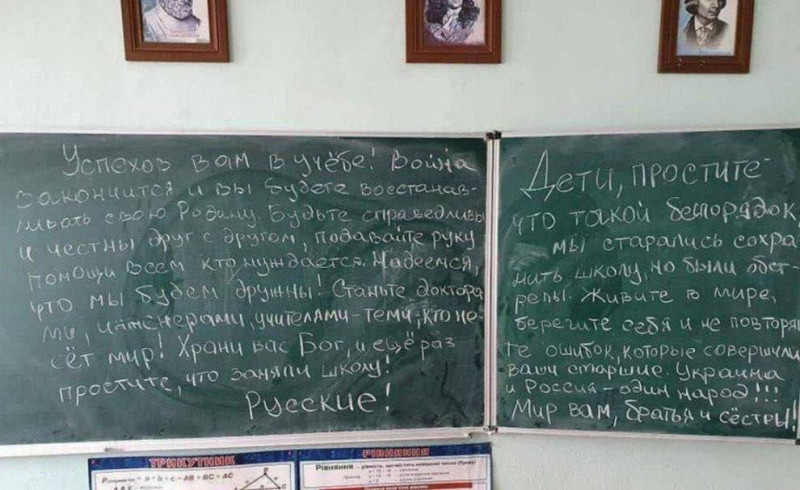 Успехов вам в учёбе! Война
закончится и вы будете восстанав-
ливать свою Родину. Будьте справедливы
и честны друг с другом, подавайте руку
помощи всем кто нуждается. Надеемся,
что мы будем дружны! Станьте доктора-
ми, инженерами, учителями-теми, кто не-
сёт мир! Храни вас Бог, и ещё раз
простите, что заняли школу!
Русские!
Дети, простите
что такой беспорядок,
мы старались сохра
нить школу, но были обст-
релы. Живите в мире,
берегите себя и не повторяй
те ошибок, которые совершили
ваши старшие. Украина
и Россия-один народ!!!
Мир вам, братья и сёстры!
ТРИКУТНИК
= a + b + c = AB + BC + AC
РІВНЯННЯ
Рівняння